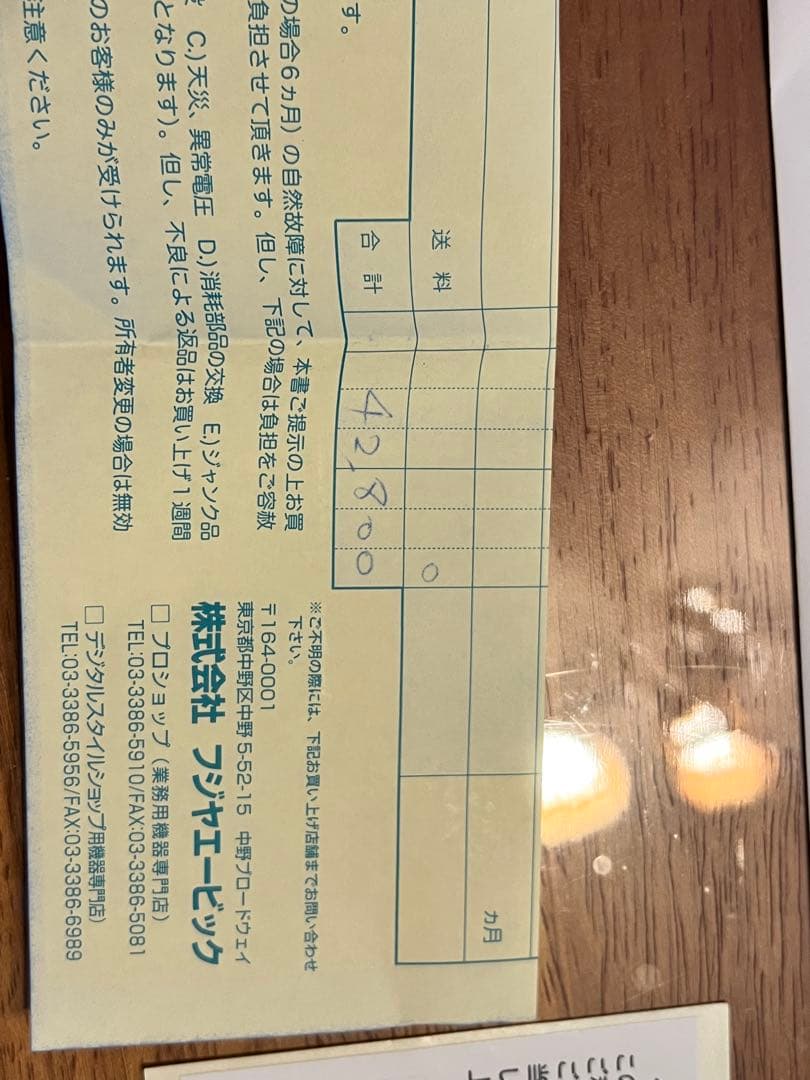 カ月
送料 0
合計 42,800
す。
の場合6ヵ月）の自然故障に対して、本書ご提示の上お買
負担させて頂きます。但し、下記の場合は負担をご容赦
C.)天災、異常電圧 D.)消耗部品の交換 E.)ジャンク品
となります)。但し、不良による返品はお買い上げ1週間
のお客様のみが受けられます。所有者変更の場合は無効
注意ください。
※ご不明の際には、下記お買い上げ店舗までお問い合わせ
下さい。
〒164-0001
東京都中野区中野5-52-15 中野ブロードウェイ
株式会社 フジヤエービック
□ プロショップ（業務用機器専門店）
TEL:03-3386-5910/FAX:03-3386-5081
□ デジタルスタイルショップ用機器専門店）
TEL:03-3386-5956/FAX:03-3386-6989